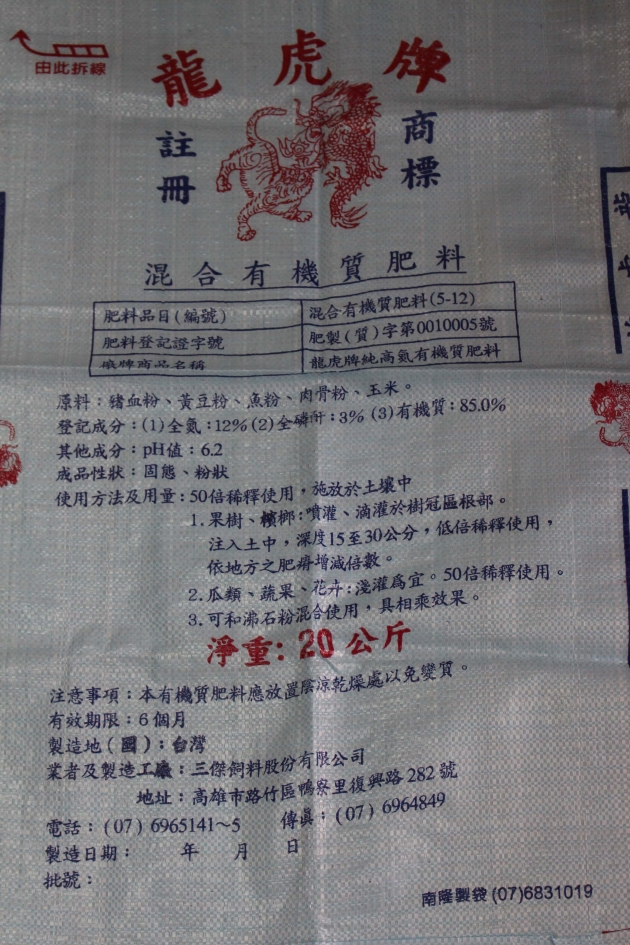 由此拆線
龍虎牌
註冊
商標
混合有機質肥料
肥料品目(編號) 混合有機質肥料(5-12)
肥料登記證字號 肥製(質)字第0010005號
廠牌商品名稱 龍虎牌純高氮有機質肥料
原料：豬血粉、黃豆粉、魚粉、肉骨粉、玉米。
登記成分：(1)全氮：12% (2)全磷酐：3% (3)有機質：85.0%
其他成分：pH值：6.2
成品性狀：固態、粉狀
使用方法及用量：50倍稀釋使用，施放於土壤中
1.果樹、檳榔：噴灌、滴灌於樹冠區根部。
注入土中，深度15至30公分，低倍稀釋使用，
依地方之肥瘠增減倍數。
2.瓜類、蔬果、花卉：淺灌為宜。50倍稀釋使用。
3.可和沸石粉混合使用，具相乘效果。
淨重：20公斤
注意事項：本有機質肥料應放置陰涼乾燥處以免變質。
有效期限：6個月
製造地(國)：台灣
業者及製造工廠：三傑飼料股份有限公司
地址：高雄市路竹區鴨寮里復興路282號
電話：(07) 6965141～5 傳真：(07) 6964849
製造日期： 年 月 日
批號：
南隆製袋 (07)6831019